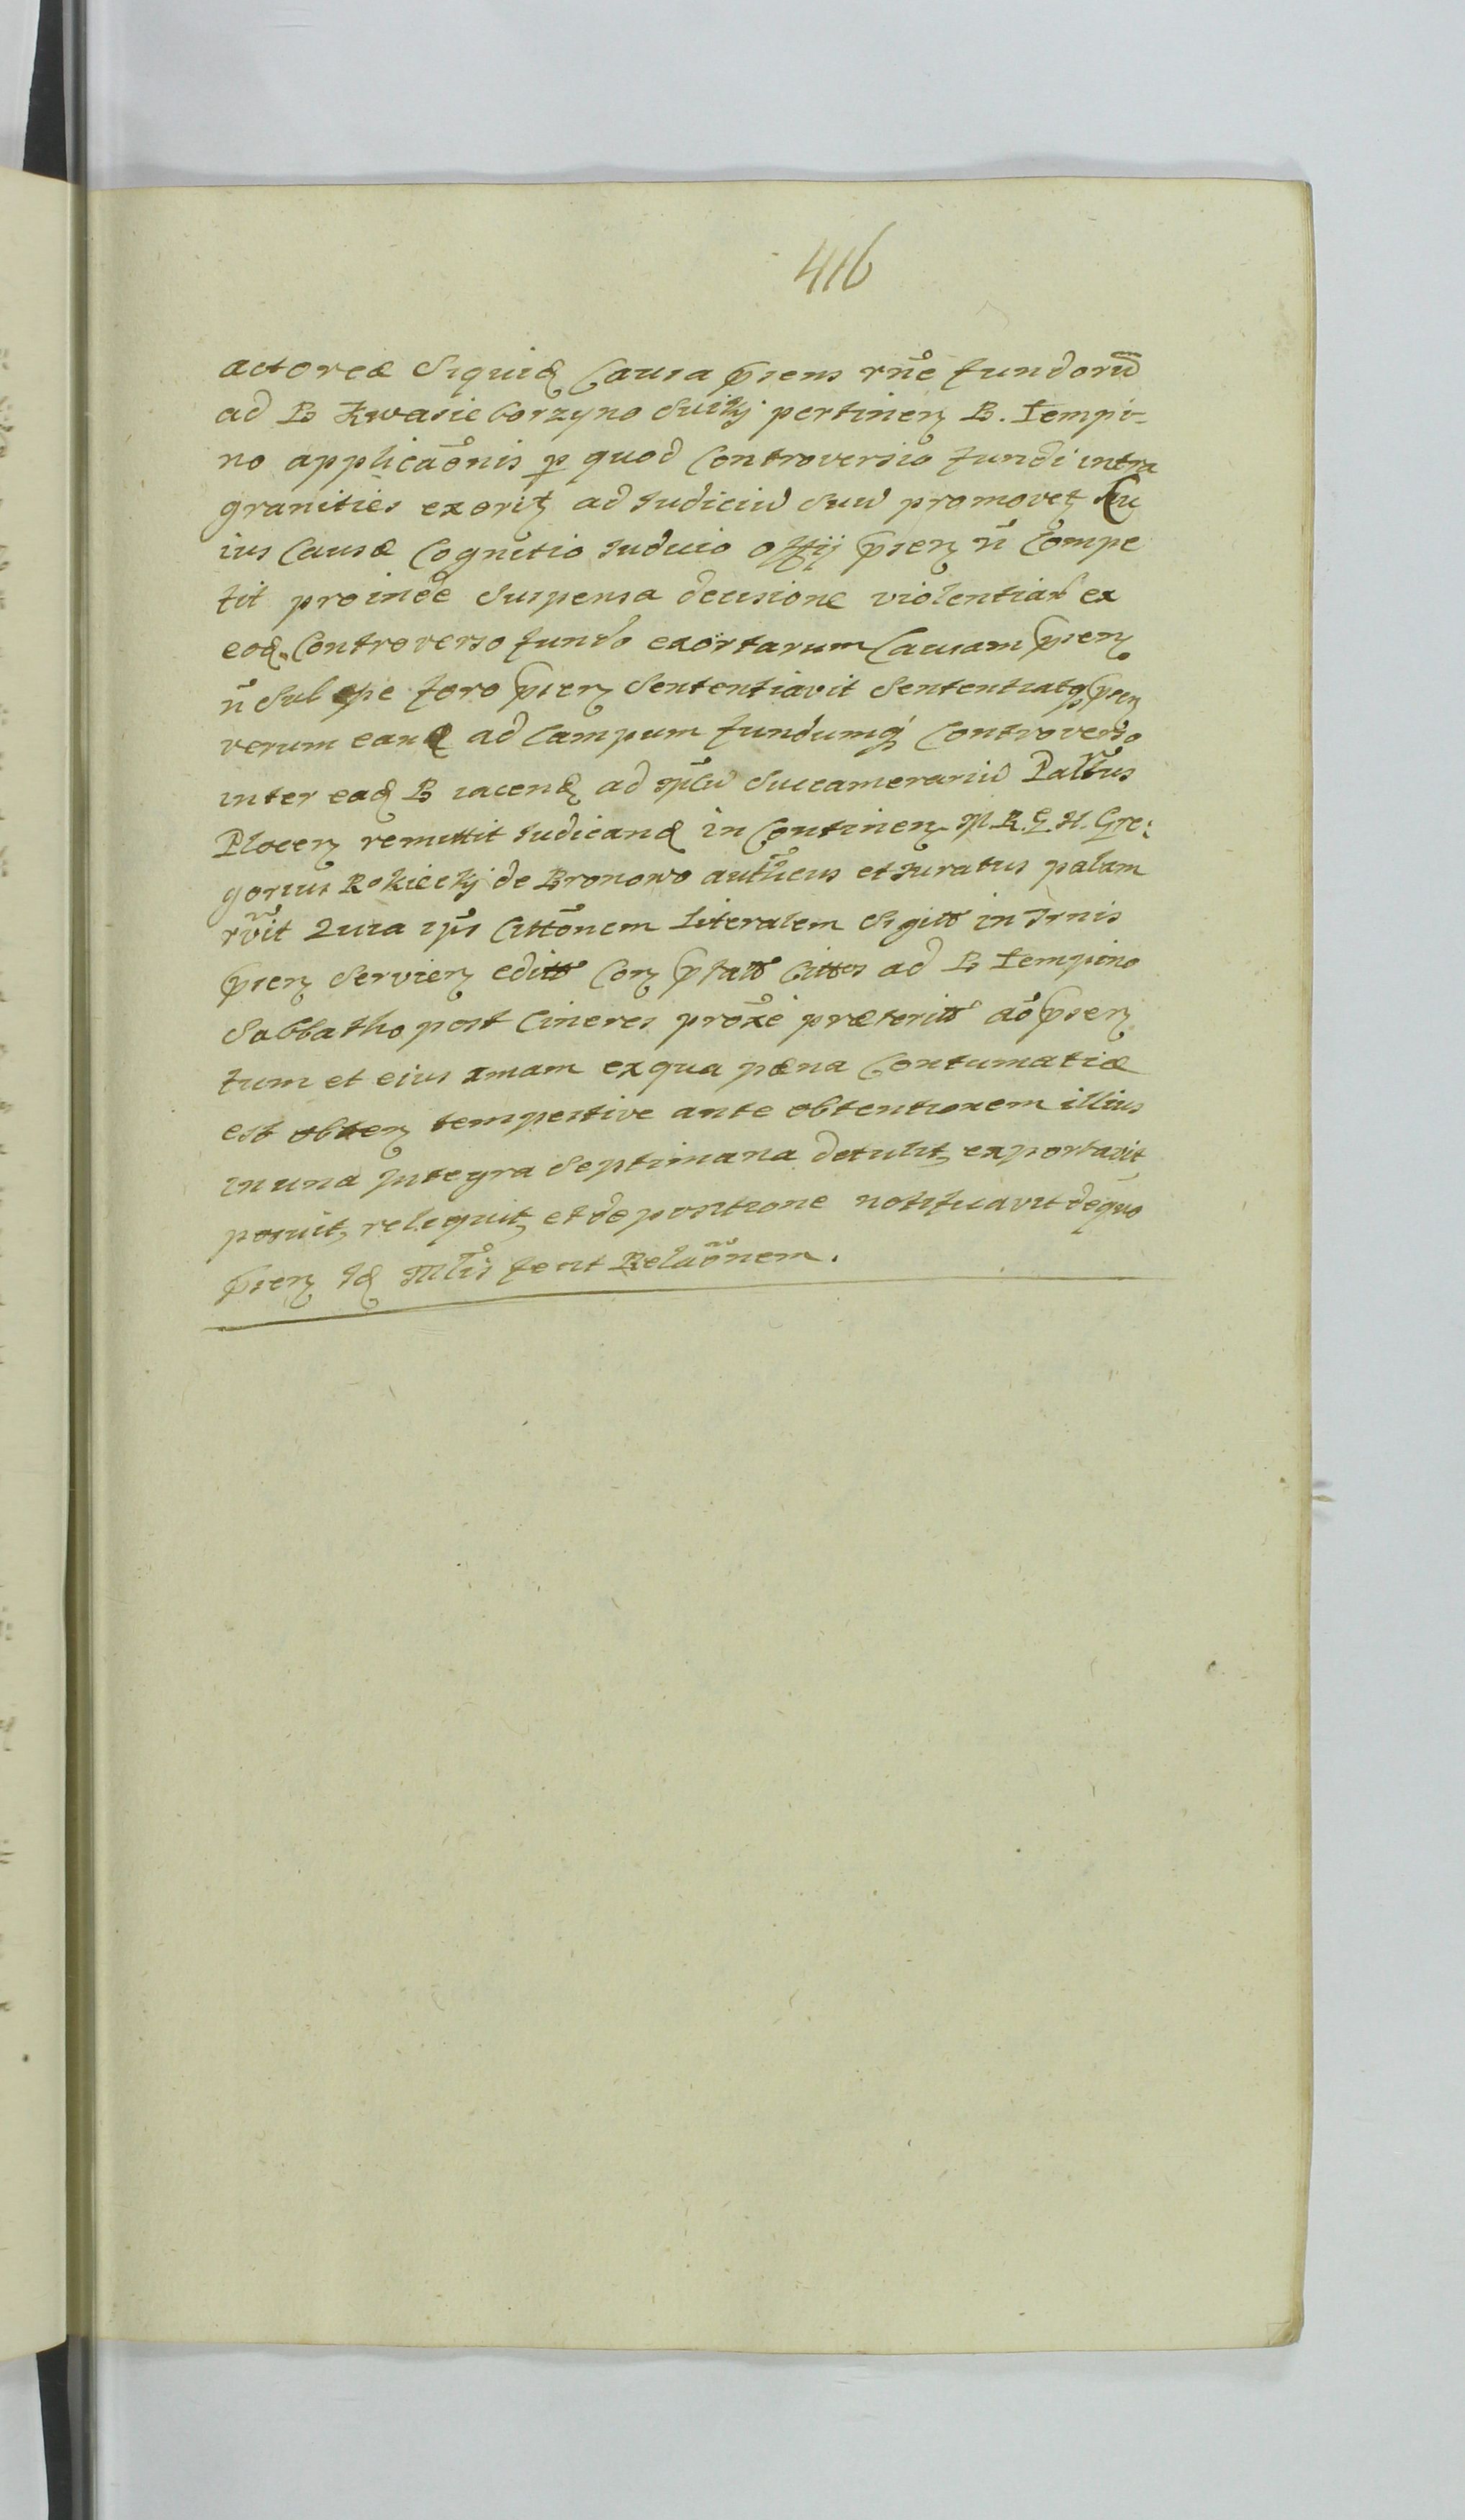 416
actoreæ Siquid Causa pñsens rñe fundorũ
ad B Kwasieborzyno Suiskj pertinen B. Tempi-
no applicaõnis p quod Controversia fundi intra
granities exorit ad Judiciũ Suũ promovet Cu
ius Causæ Cognitio Judicio Offij pñsen ñ Compe
tit proinde Suspensa decisione violentiarũ ex
eod. Controverso fundo exortarum Causam pñsen
ñ Sub spe foro pñsen Sententiavit Sententiatq pñsen
verum eand ad Campum fundumq Controverso
inter ead B iacend ad Succamerariũ Palttus
Plocen remittit Judicand in Continen M. R. E. H. Gre:
gorius Rokickj de Bronowo auticus et Juratus palam
rvit Quia ips Cittõnem Literalem Sigitt in Trnis
pñsen Servien editt Con pstatt Cittos ad B Tempino
Sabbatho post Cineres proxe præteritt aõ pñsen
tum et eius xmam ex qua pæna Contumatiæ
est obten tempestive ante obtentionem illius
in una Integra Septimana detulit, exportavit,
posuit, reliquit, et de positione notificavit de quo
pñsen Id Mlis fecit Relaõnem.